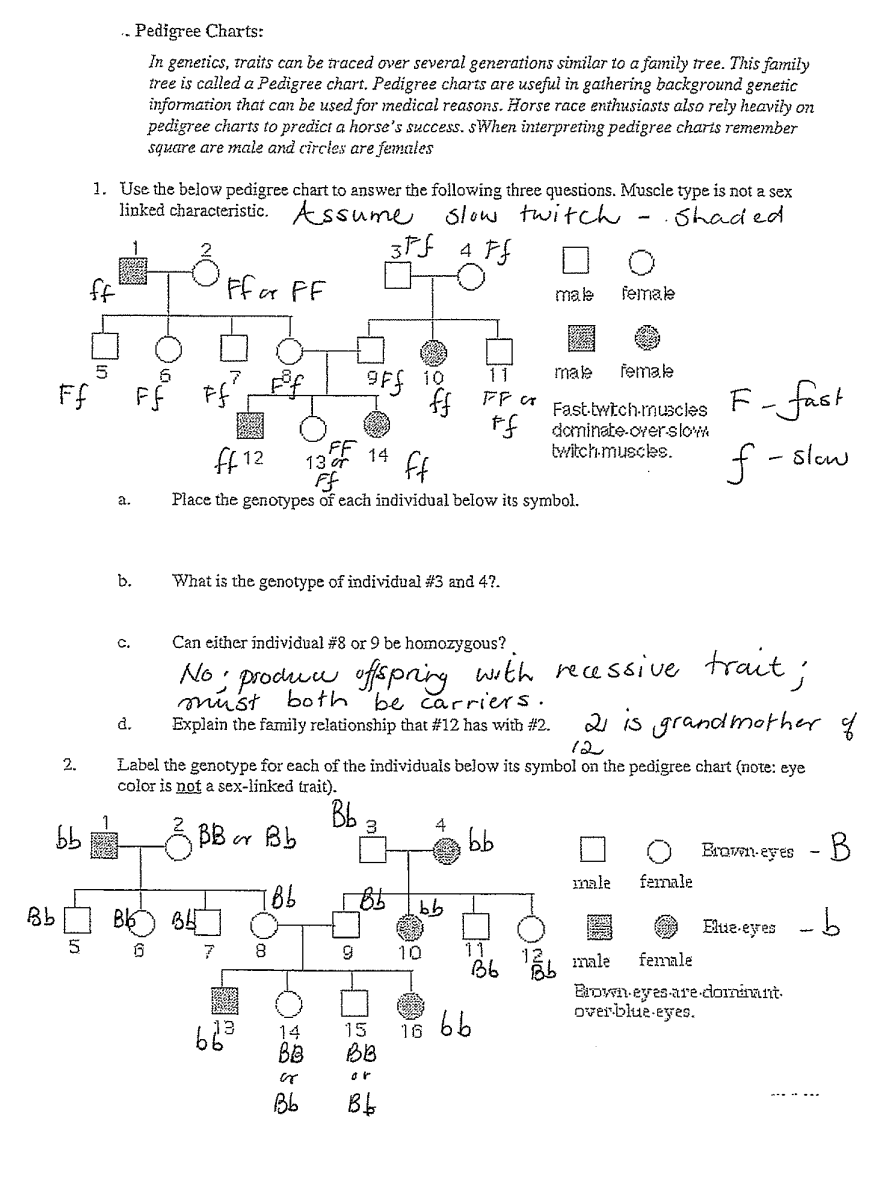 Pedigree Charts:
In genetics, traits can be traced over several generations similar to a family tree. This family
tree is called a Pedigree chart. Pedigree charts are useful in gathering background genetic
information that can be used for medical reasons. Horse race enthusiasts also rely heavily on
pedigree charts to predict a horse's success. sWhen interpreting pedigree charts remember
square are male and circles are females
1. Use the below pedigree chart to answer the following three questions. Muscle type is not a sex
linked characteristic. Assume slow twitch - shaded
1 2 3 Ff 4 Ff
ff Ff or FF
male female
5 6 7 8 9 Ff 10 11
male female
Ff Ff Ff Ff ff FF or
Ff
Fast-twitch-muscles
dominate-over-slow
twitch-muscles.
F - fast
f - slow
ff 12 13 FF or Ff 14 ff
a. Place the genotypes of each individual below its symbol.
b. What is the genotype of individual #3 and 4?.
c. Can either individual #8 or 9 be homozygous?
No; produce offspring with recessive trait;
must both be carriers.
d. Explain the family relationship that #12 has with #2. 2 is grandmother of
12
2. Label the genotype for each of the individuals below its symbol on the pedigree chart (note: eye
color is not a sex-linked trait).
1 2 Bb 3 4
bb BB or Bb bb
Brown-eyes - B
male female
Bb Bb Bb Bb Bb bb
Blue-eyes - b
5 6 7 8 9 10 11 12
Bb Bb
male female
Brown-eyes-are-dominant-
over-blue-eyes.
bb 13 14 15 16 bb
BB BB
or or
Bb Bb